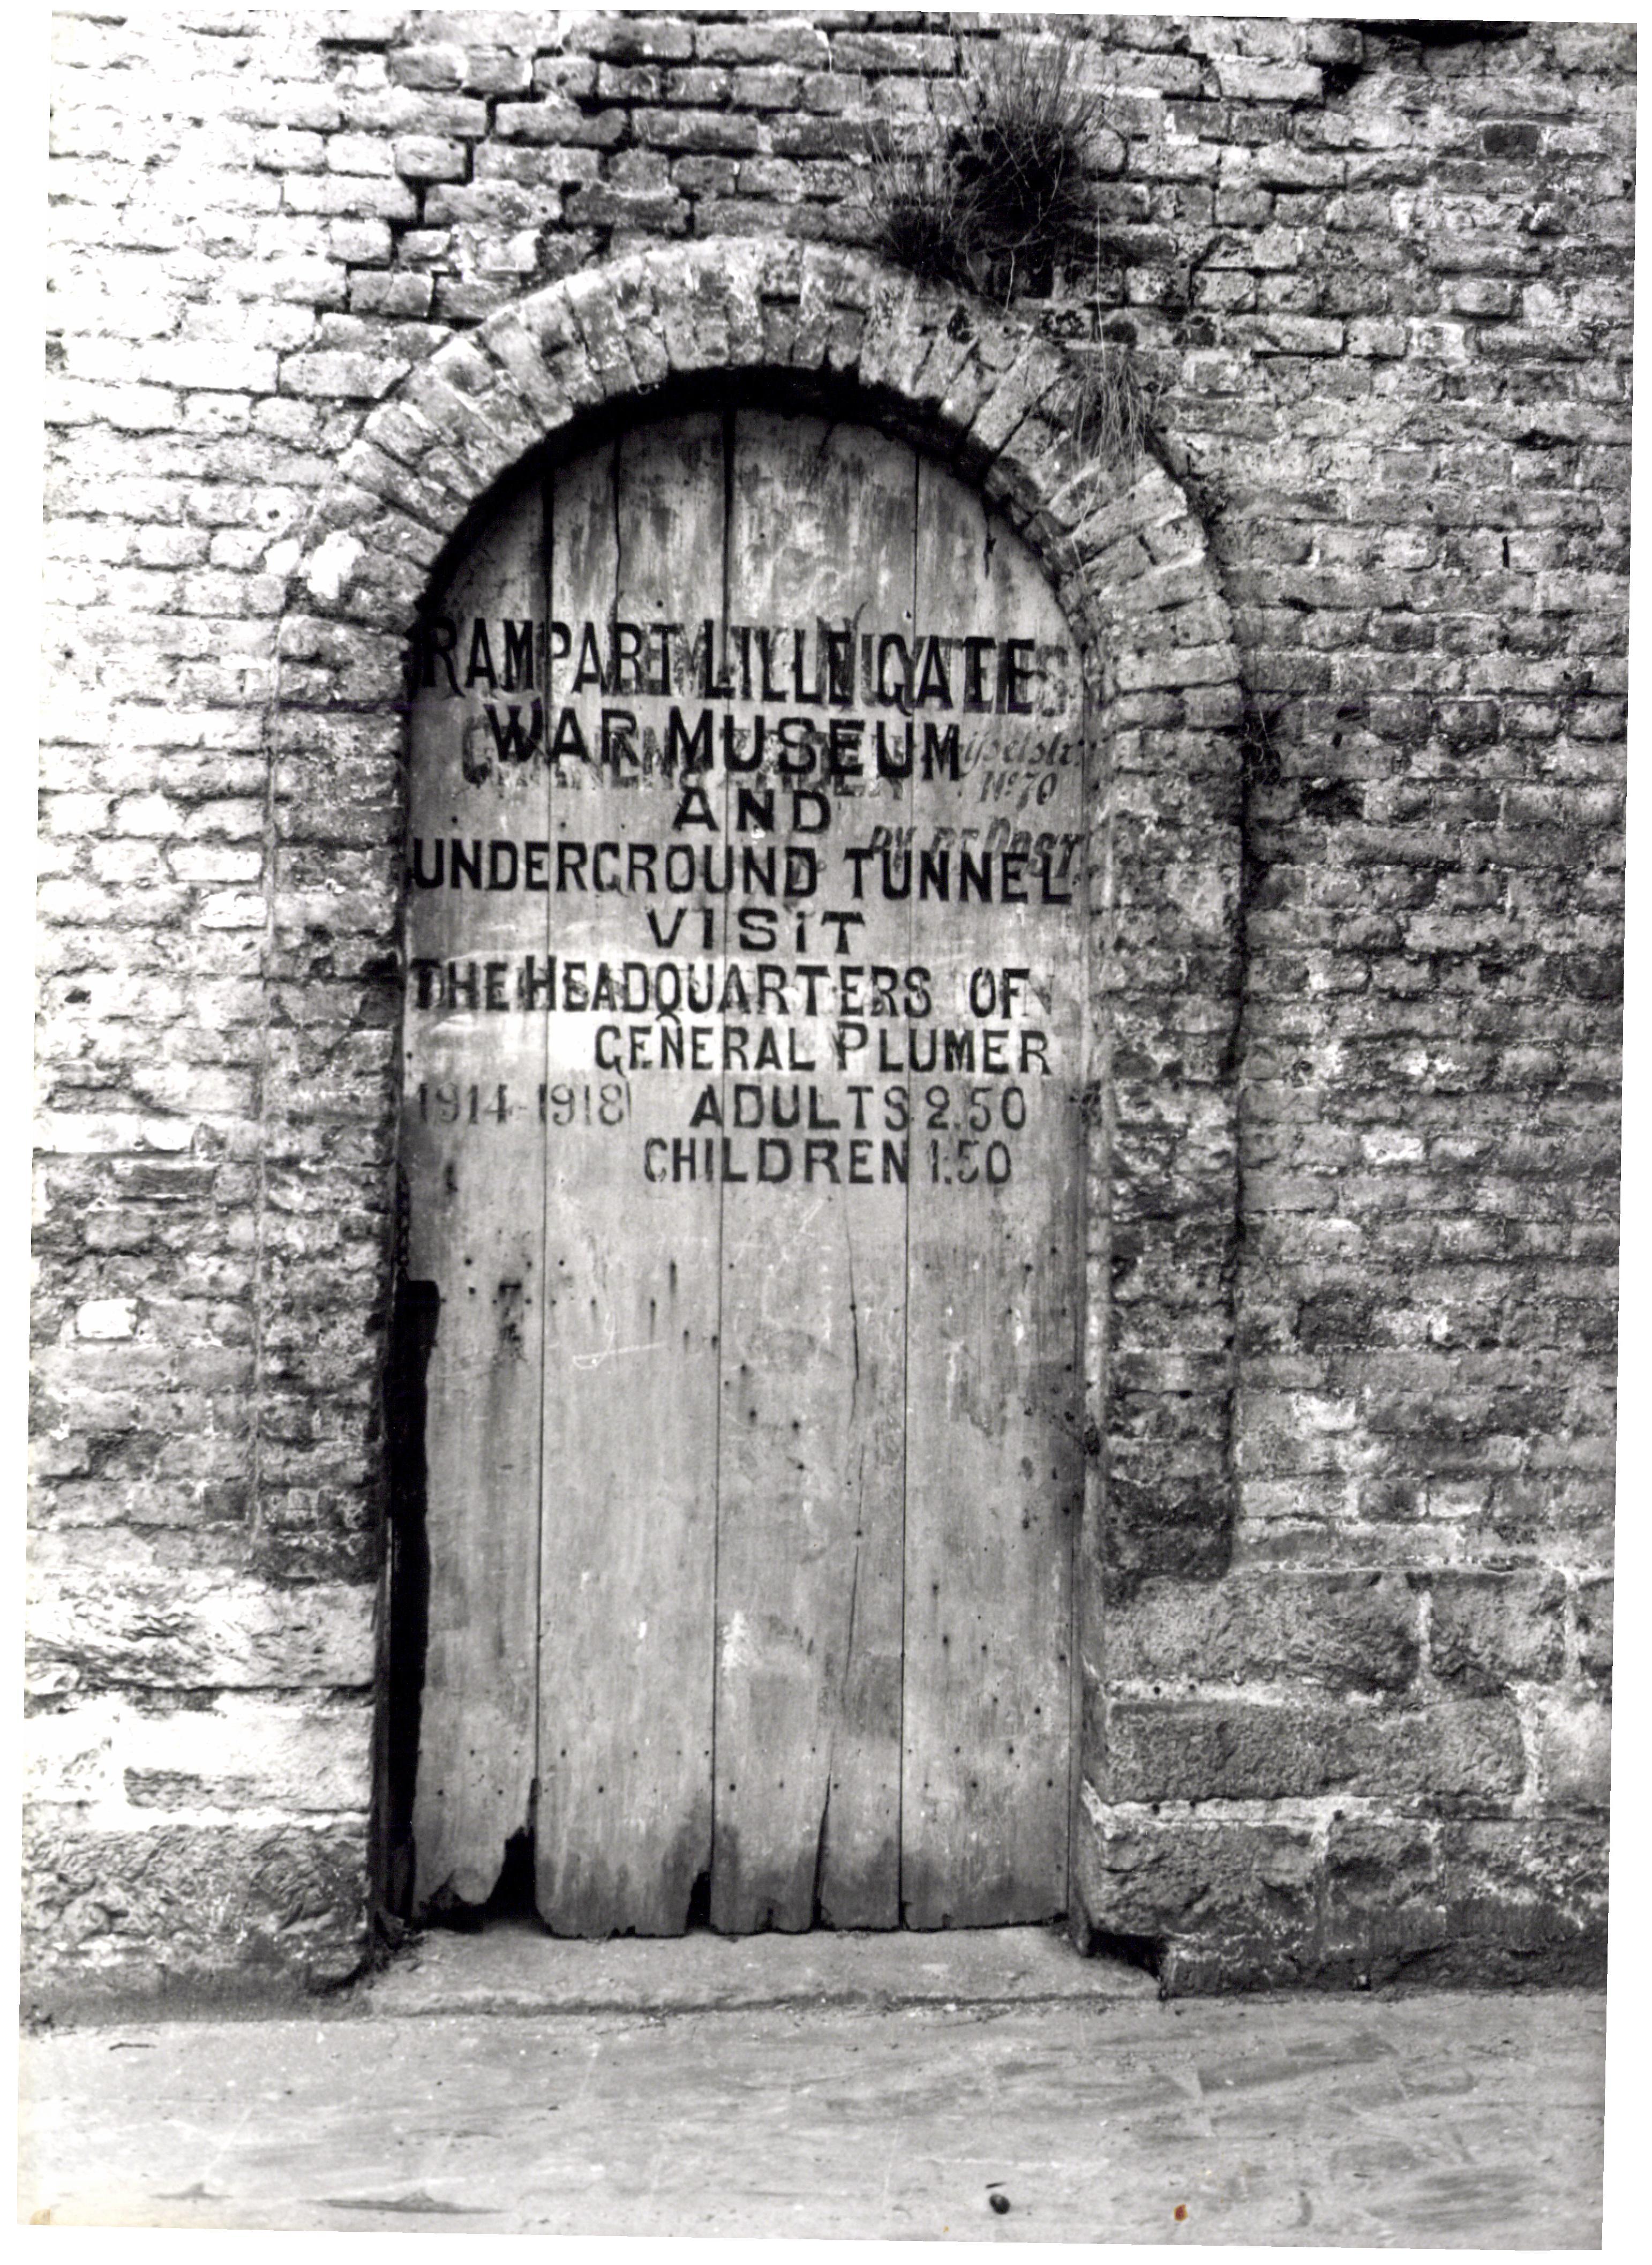 RAMPART LILLE GATE
WAR MUSEUM
Nº 70
AND
UNDERGROUND TUNNEL
VISIT
THE HEADQUARTERS OF
GENERAL PLUMER
1914-1918 ADULTS 2.50
CHILDREN 1.50